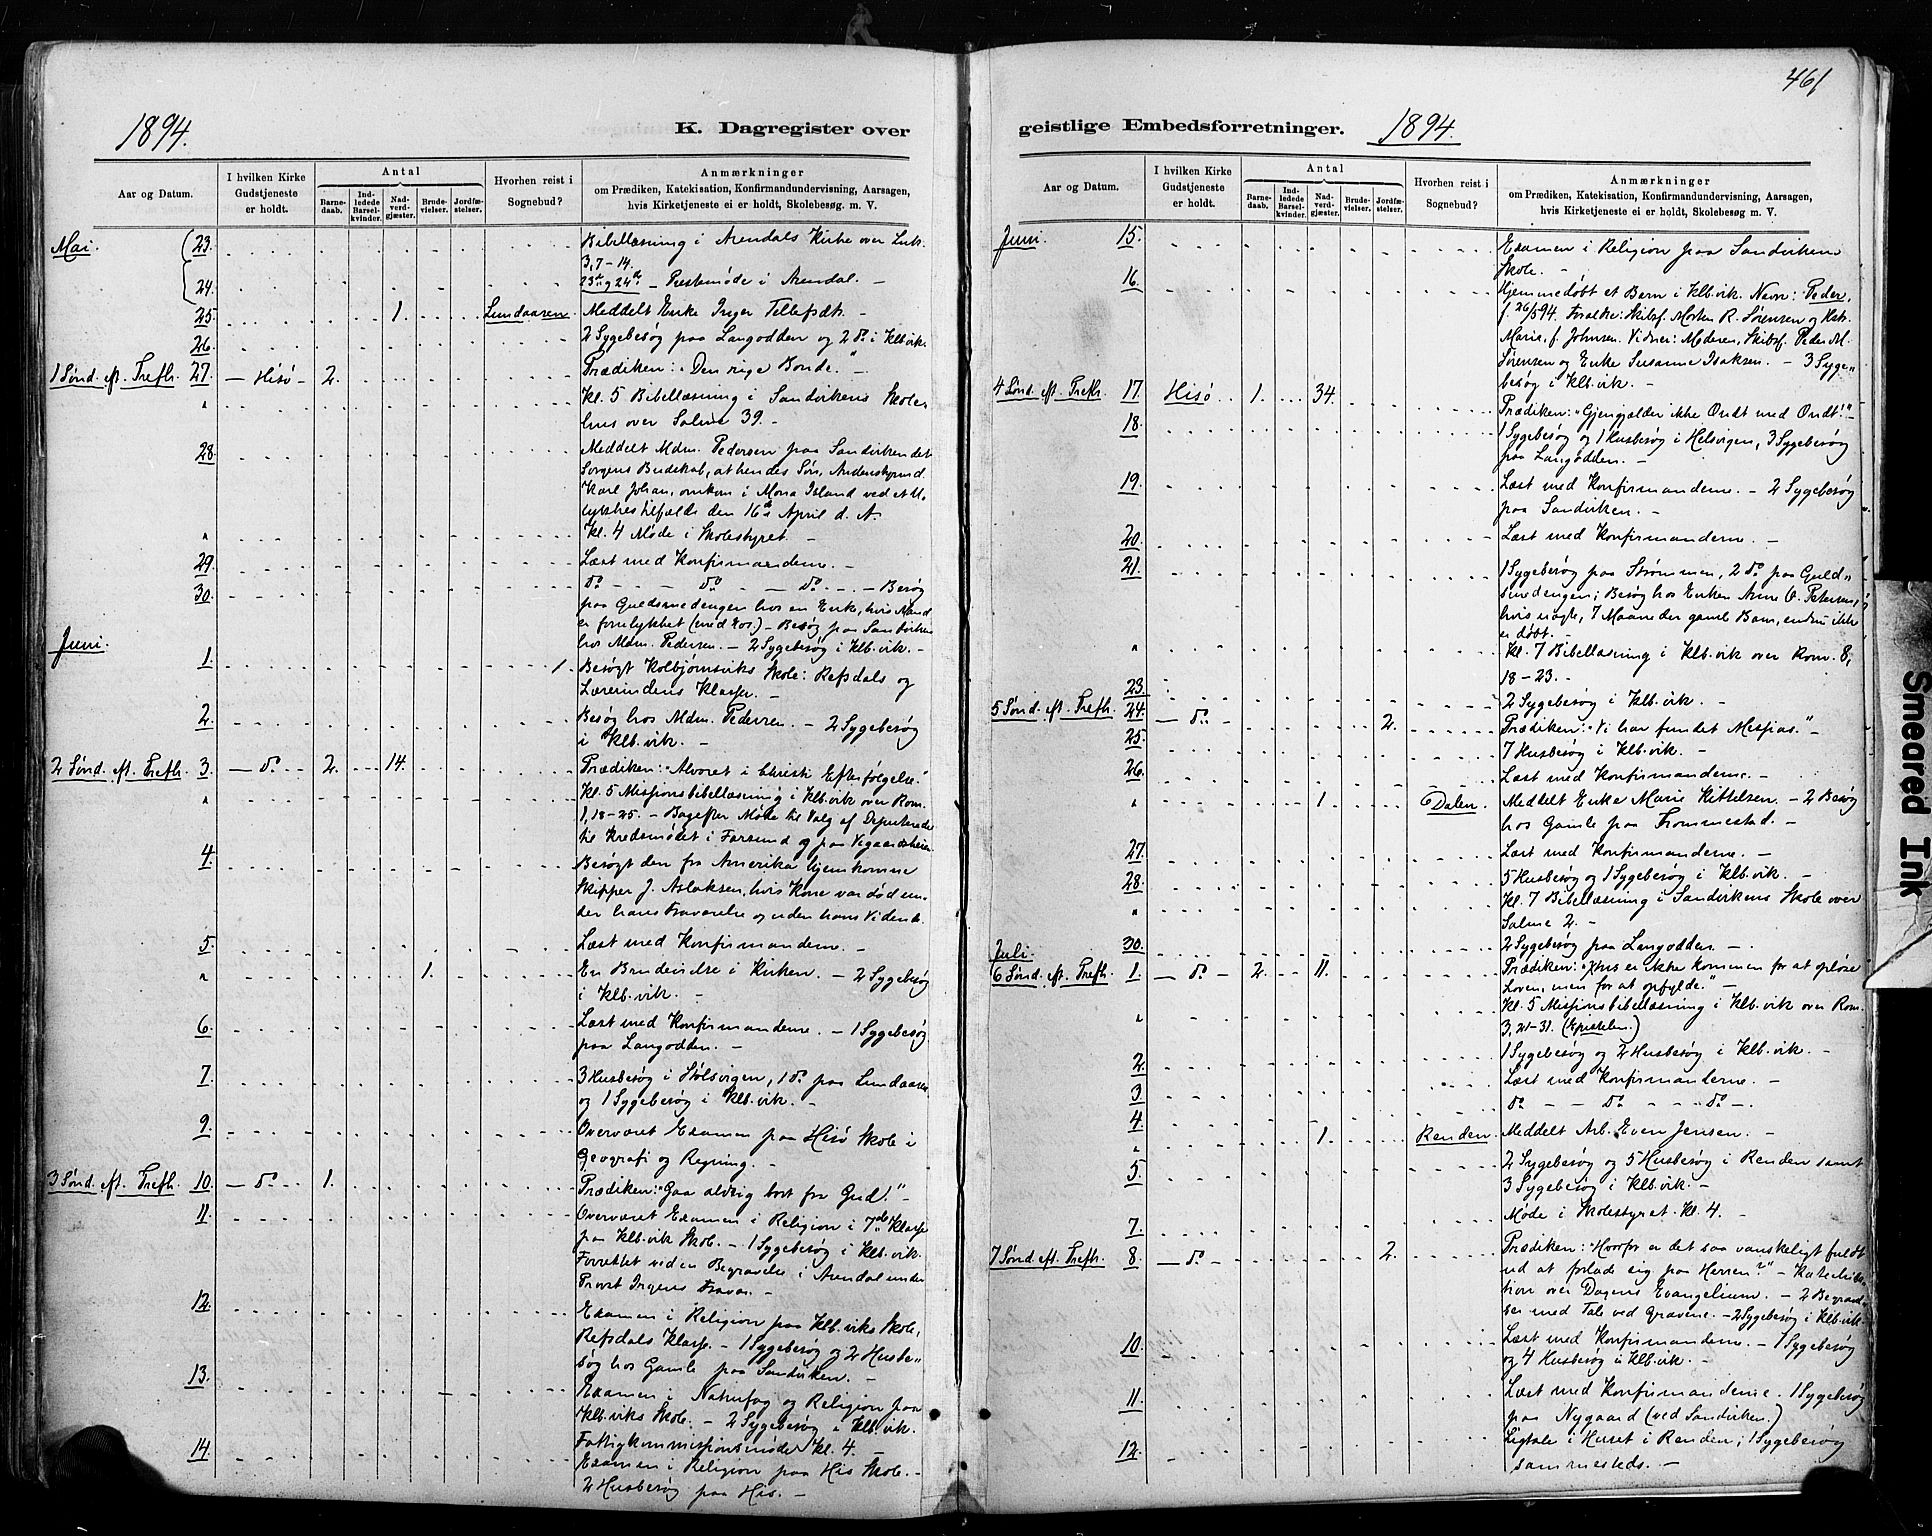 1894.
K. Dagregister over
Aar og Datum.
I hvilken Kirke Gudstjeneste er holdt.
Antal
Barnedaab.
Indledede Barselkvinder.
Nadvergjæster.
Brudevielser.
Jordfæstelser.
Hvorhen reist i Sognebud?
Anmærkninger
om Prædiken, Katekisation, Konfirmandundervisning, Aarsagen,
hvis Kirketjeneste ei er holdt, Skolebesøg m. V.
Mai. 23. Bibellæsning i Arendals Kirke over Luk.
3, 7-14.
24. 23de og 24de - Præstemøde i Arendal. -
25. 1. Lundaasen. Meddelt Enke Inger Tellefsdtr. -
26. 2 Sygebesøg paa Langodden og 2 do i Klb.vik.
1 Sønd. eft. Trefh. 27. - Hisø - 2. Prædiken: "Den rige Bonde." -
" Kl. 5 Bibellæsning i Sandvikens Skole-
hus over Salme 39. -
28. Meddelt Mdm. Pedersen paa Sandviken det
Sorgens Budskab, at hendes Søn, Andenstyrmd
Karl Johan, omkom i Mona Island ved et U-
lykkestilfælde den 16de April d. A.
" Kl. 4 Møde i Skolestyret. -
29. Læst med Konfirmanderne. -
30. do - - do - do - - Besøg
paa Guldsmedengen hos en Enke, hvis Mand
er forulykket (med Kos.) - Besøg paa Sandviken
hos Mdm. Pedersen. - 2 Sygebesøg i Klb.vik. -
Juni.
1. 1. Besøgt Kolbjørnsviks Skole: Refsdals og
Lærerindens Klasse. -
2. Besøg hos Mdm. Pedersen. - 2 Sygebesøg
i Klb.vik. -
2 Sønd. eft. Trefh. 3. - do - 2. 14. Prædiken: "Alvoret i Christi Efterfølgelse."
" Kl. 5 Missionsbibellæsning i Klb.vik over Rom.
1, 18-25. - Bagefter Møde til Valg af Deputerede
til Kredsmødet i Farsund og paa Vegaardsheien
4. Besøgt den fra Amerika hjemkomne
Skipper J. Aslaksen, hvis Kone var død un-
der hans Fraværelse og uden hans Vidende.
5. Læst med Konfirmanderne. -
" 1. En Brudevielse i Kirken. - 2 Sygebesøg
i Klb.vik. -
6. Læst med Konfirmanderne. - 1 Sygebesøg
paa Langodden. -
7. 3 Husbesøg i Hølsvigen, 1 do paa Lundaasen
og 1 Sygebesøg i Klb.vik. -
9. Overværet Examen paa Hisø Skole i
Geografi og Regning. -
3 Sønd. eft. Trefh. 10. - do - 1. Prædiken: "Gaa aldrig bort fra Gud!" -
11. Overværet Examen i Religion i 7de Klasse
paa Klb.vik Skole. - 1 Sygebesøg i Klb.vik.
Forrettet ved en Begravelse i Arendal under
Provst Irgens Fravær. -
12. Examen i Religion paa Klb.viks Skole,
Refsdals Klasse. - 1 Sygebesøg og 2 Husbe-
søg hos Gamle paa Sandviken. -
13. Examen i Naturfag og Religion paa
Klb.viks Skole. - 2 Sygebesøg i Klb.vik.
Fattigkommissionsmøde Kl. 4. -
14. Examen i Religion paa His Skole. -
2 Husbesøg paa His. -
461
geistlige Embedsforretninger. 1894.
Aar og Datum.
I hvilken Kirke Gudstjeneste er holdt.
Antal
Barnedaab.
Indledede Barselkvinder.
Nadvergjæster.
Brudevielser.
Jordfæstelser.
Hvorhen reist i Sognebud?
Anmærkninger
om Prædiken, Katekisation, Konfirmandundervisning, Aarsagen,
hvis Kirketjeneste ei er holdt, Skolebesøg m. V.
Juni. 15. Examen i Religion paa Sandvikens
Skole. -
16. Hjemmedøbt et Barn i Klb.vik. Navn: Peder,
f. 26/5 94. Forældre: Skibsf. Morten R. Sørensen og Hstr.
Marie, f. Johnsen. Vidner: Moderen, Skibsf. Peder M.
Sørensen og Enke Susanne Isaksen. - 3 Syge-
besøg i Klb.vik. -
4 Sønd. eft. Trefh. 17. Hisø 1. 34. Prædiken: "Gjengjælder ikke Ondt med Ondt!" -
18. 1 Sygebesøg og 1 Husbesøg i Helsvigen, 3 Sygebesøg
paa Langodden. -
19. Læst med Konfirmanderne. - 2 Sygebesøg
paa Sandviken. -
20. Læst med Konfirmanderne. -
21. 1 Sygebesøg paa Strømmen, 2 do paa Guld-
smedengen; Besøg hos Enken Anne O. Petersen,
hvis uægte, 7 Maaneder gamle Barn, endnu ikke
er døbt. -
" Kl. 7 Bibellæsning i Klb.vik over Rom. 8,
18-23. -
23. 2 Sygebesøg i Klb.vik. -
5 Sønd. eft. Trefh. 24. - do - 2. Prædiken: "Vi har fundet Messias."
25. 7 Husbesøg i Klb.vik. -
26. Læst med Konfirmanderne. -
" 1. Dalen. Meddelt Enke Marie Kittelsen. - 2 Besøg
hos Gamle paa Trommestad. -
27. Læst med Konfirmanderne. -
28. 5 Husbesøg og 1 Sygebesøg i Klb.vik. -
" Kl. 7 Bibellæsning i Sandvikens Skole over
Salme 2. -
30. 2 Sygebesøg paa Langodden. -
Juli.
6 Sønd. eft. Trefh. 1. - do - 2. 11. Prædiken: "Xtus er ikke kommen for at opløse
Loven, men for at opfylde." -
" Kl. 5 Missionsbibellæsning i Klb.vik over Rom.
3, 21-31. (Epistelen.)
2. 1 Sygebesøg og 2 Husbesøg i Klb.vik. -
3. Læst med Konfirmanderne. -
4. do - - do - - do -
" 1. Renden. Meddelt Arb. Even Jensen. -
5. 2 Sygebesøg og 5 Husbesøg i Renden samt
3 Sygebesøg i Klb.vik. -
7. Møde i Skolestyret Kl. 4. -
7 Sønd. eft. Trefh. 8. - do - 2. Prædiken: "Hvorfor er det saa vanskeligt fuldt
ud at forlade sig paa Herren?" - Katechisa-
tion over Dagens Evangelium. - 2 Begravel-
ser med Tale ved Gravene. - 2 Sygebesøg i Klb.vik.
10. Læst med Konfirmanderne. - 1 Sygebesøg
og 4 Husbesøg i Klb.vik. -
11. Læst med Konfirmanderne. 1 Sygebesøg
paa Nygaard (ved Sandviken.)
12. Ligtale i Huset i Renden; 1 Sygebesøg
sammesteds. -
Smeared Ink